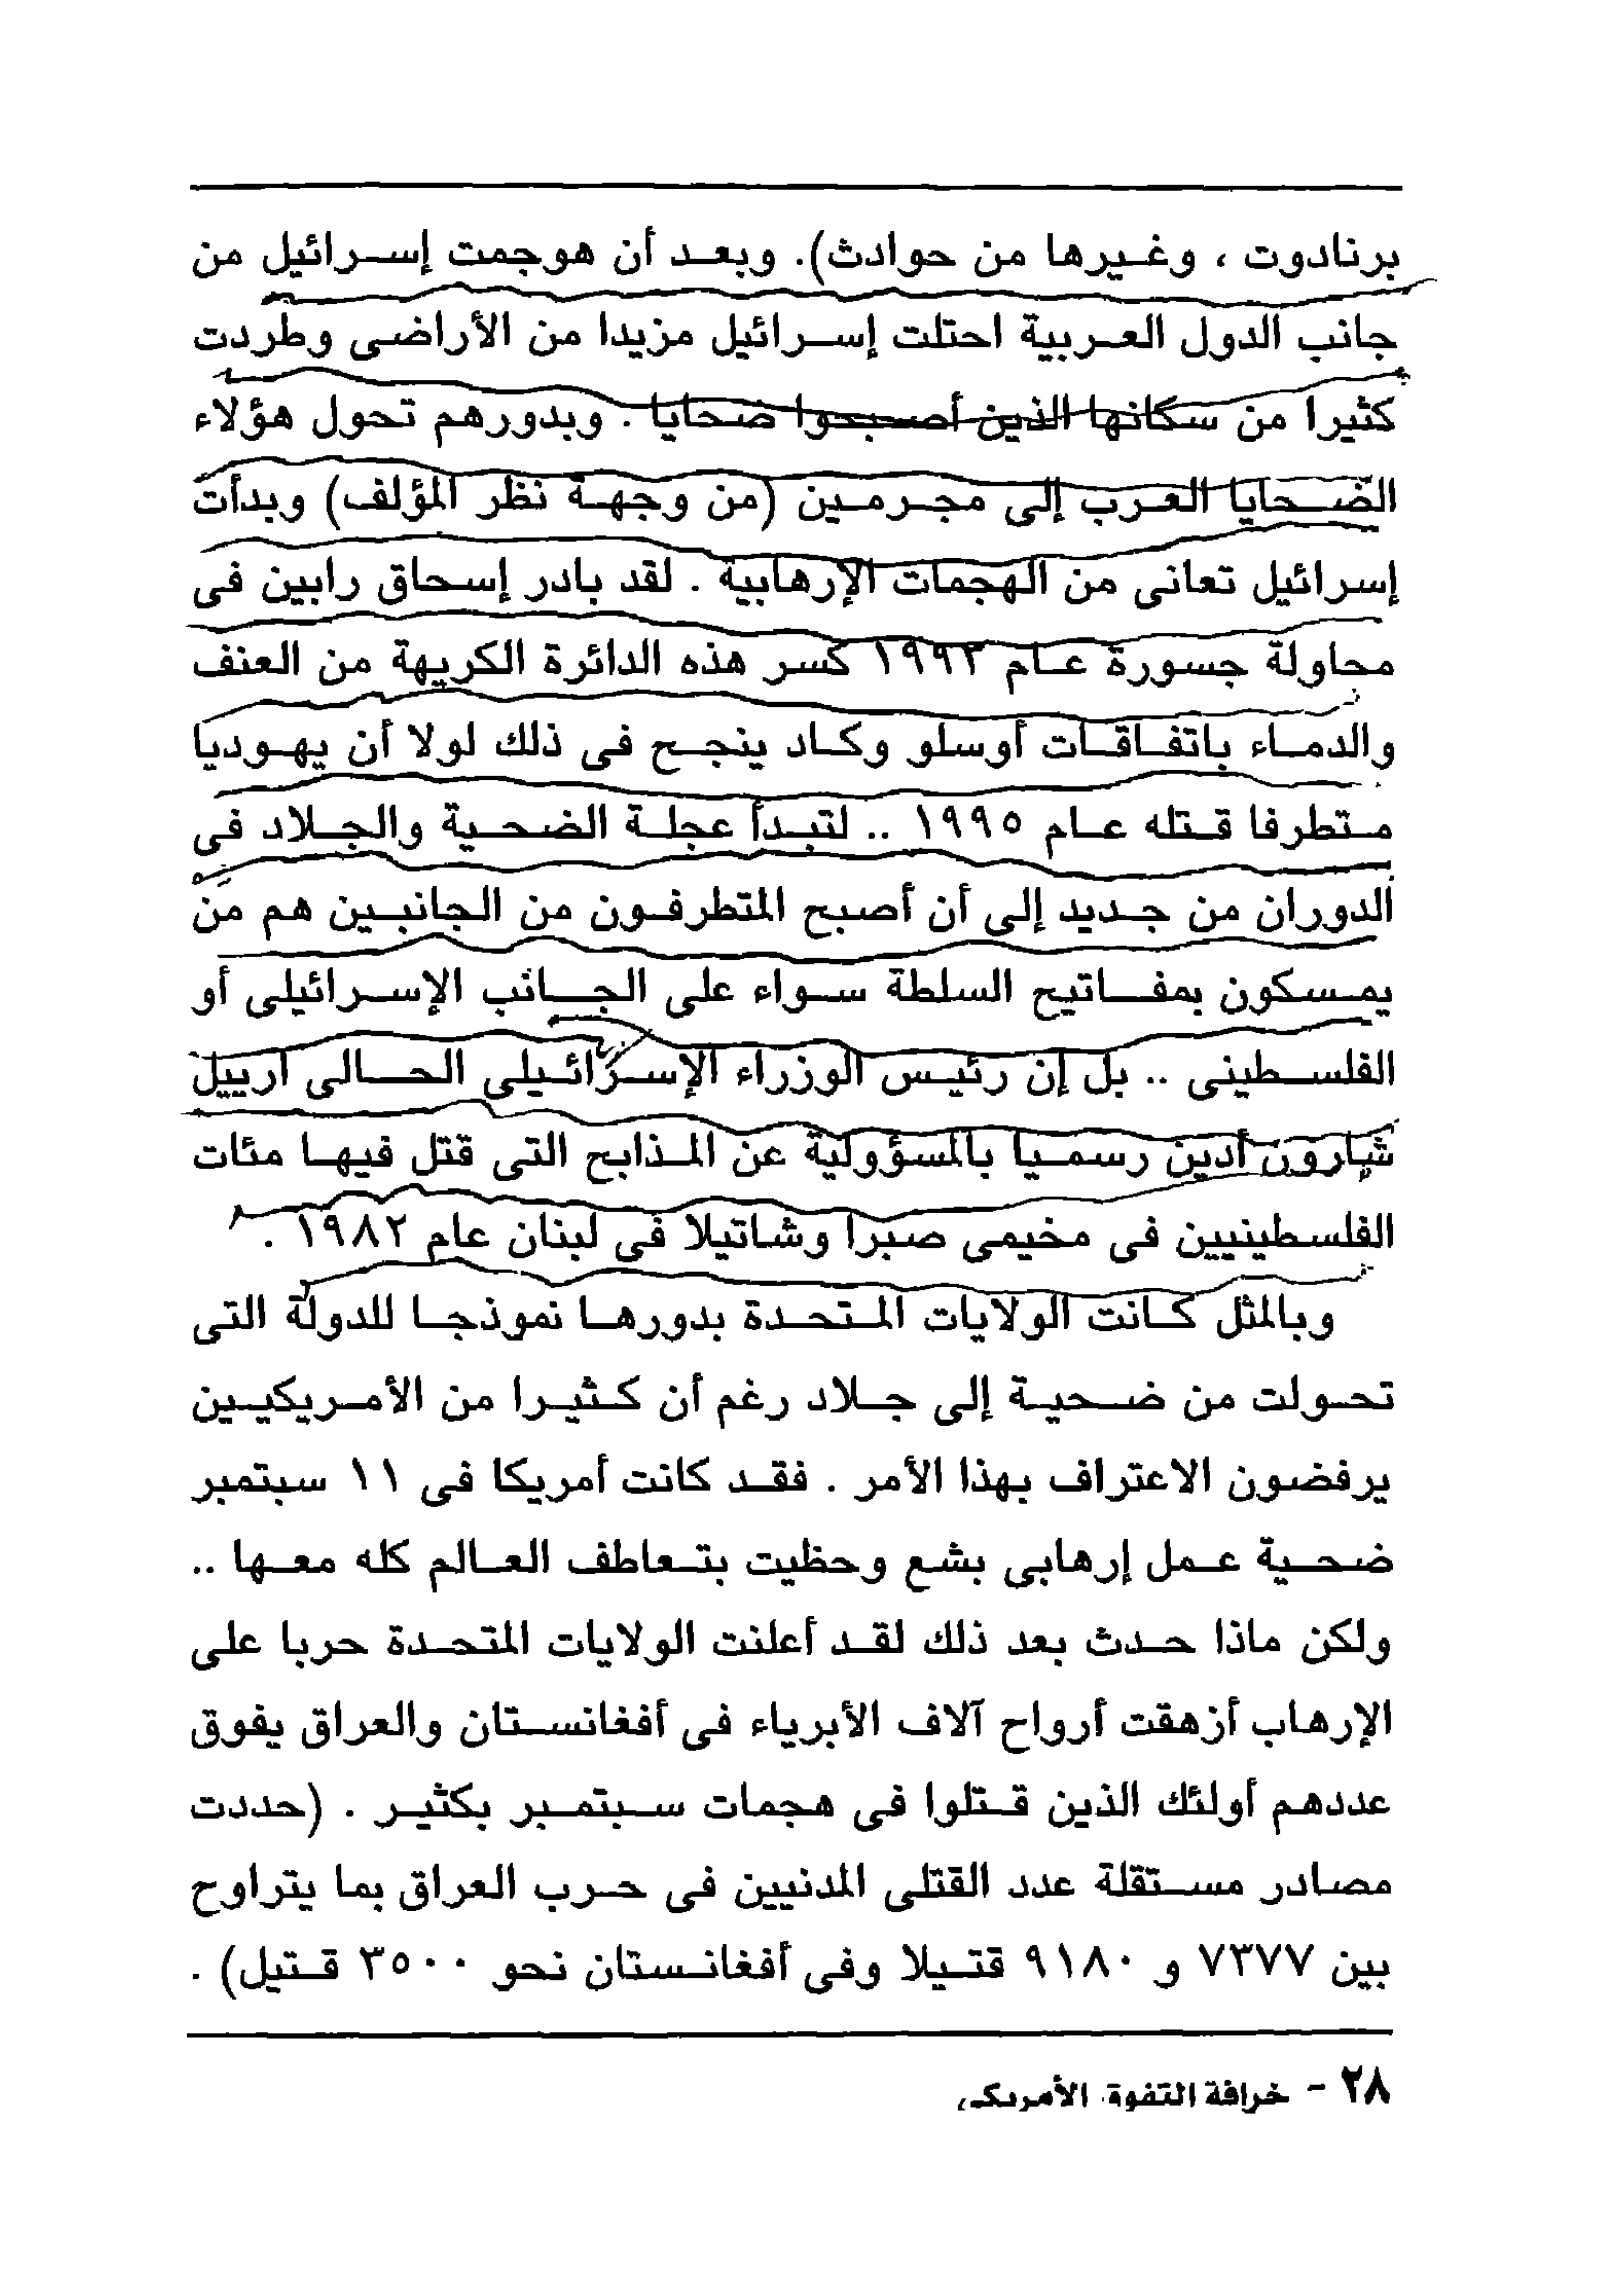 برنادوت ، وغيرها من حوادث). وبعد أن هوجمت إسرائيل من
جانب الدول العربية احتلت إسرائيل مزيدا من الأراضى وطردت
كثيرا من سكانها الذين أصبحوا ضحايا . وبدورهم تحول هؤلاء
الضحايا العرب إلى مجرمين (من وجهة نظر المؤلف) وبدأت
إسرائيل تعانى من الهجمات الإرهابية . لقد بادر إسحاق رابين فى
محاولة جسورة عام ١٩٩٣ كسر هذه الدائرة الكريهة من العنف
والدماء باتفاقات أوسلو وكاد ينجح فى ذلك لولا أن يهوديا
متطرفا قتله عام ١٩٩٥ .. لتبدأ عجلة الضحية والجلاد فى
الدوران من جديد إلى أن أصبح المتطرفون من الجانبين هم من
يمسكون بمفاتيح السلطة سواء على الجانب الإسرائيلى أو
الفلسطينى .. بل إن رئيس الوزراء الإسرائيلى الحالى ارييل
شارون أدين رسميا بالمسؤولية عن المذابح التى قتل فيها مئات
الفلسطينيين فى مخيمى صبرا وشاتيلا فى لبنان عام ١٩٨٢ .
وبالمثل كانت الولايات المتحدة بدورها نموذجا للدولة التى
تحولت من ضحية إلى جلاد رغم أن كثيرا من الأمريكيين
يرفضون الاعتراف بهذا الأمر . فقد كانت أمريكا فى ١١ سبتمبر
ضحية عمل إرهابى بشع وحظيت بتعاطف العالم كله معها ..
ولكن ماذا حدث بعد ذلك لقد أعلنت الولايات المتحدة حربا على
الإرهاب أزهقت أرواح آلاف الأبرياء فى أفغانستان والعراق يفوق
عددهم أولئك الذين قتلوا فى هجمات سبتمبر بكثير . (حددت
مصادر مستقلة عدد القتلى المدنيين فى حرب العراق بما يتراوح
بين ٧٣٧٧ و ٩١٨٠ قتيلا وفى أفغانستان نحو ٣٥٠٠ قتيل) .
٢٨ - خرافة التفوق الأمريكى